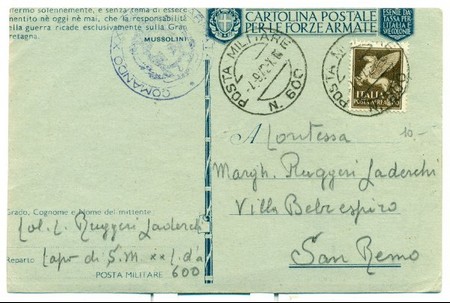 fermo solennemente, e senza tema di essere
mentito nè oggi nè mai, che la responsabilità
della guerra ricade esclusivamente sulla Gran
retagna.
MUSSOLINI
COMANDO X
CARTOLINA POSTALE
PER LE FORZE ARMATE
ESENTE DA
TASSA PER
L'ITALIA E
SUE COLONIE
POSTA MILITARE
N. 600
ITALIA
POSTA AEREA
10-
A Contessa
Margh. Ruggeri Laderchi
Villa Belrespiro
San Remo
Grado, Cognome e Nome del mittente
Col. L. Ruggeri Laderchi
Reparto Capo di S.M. xx C. d'a
POSTA MILITARE 600